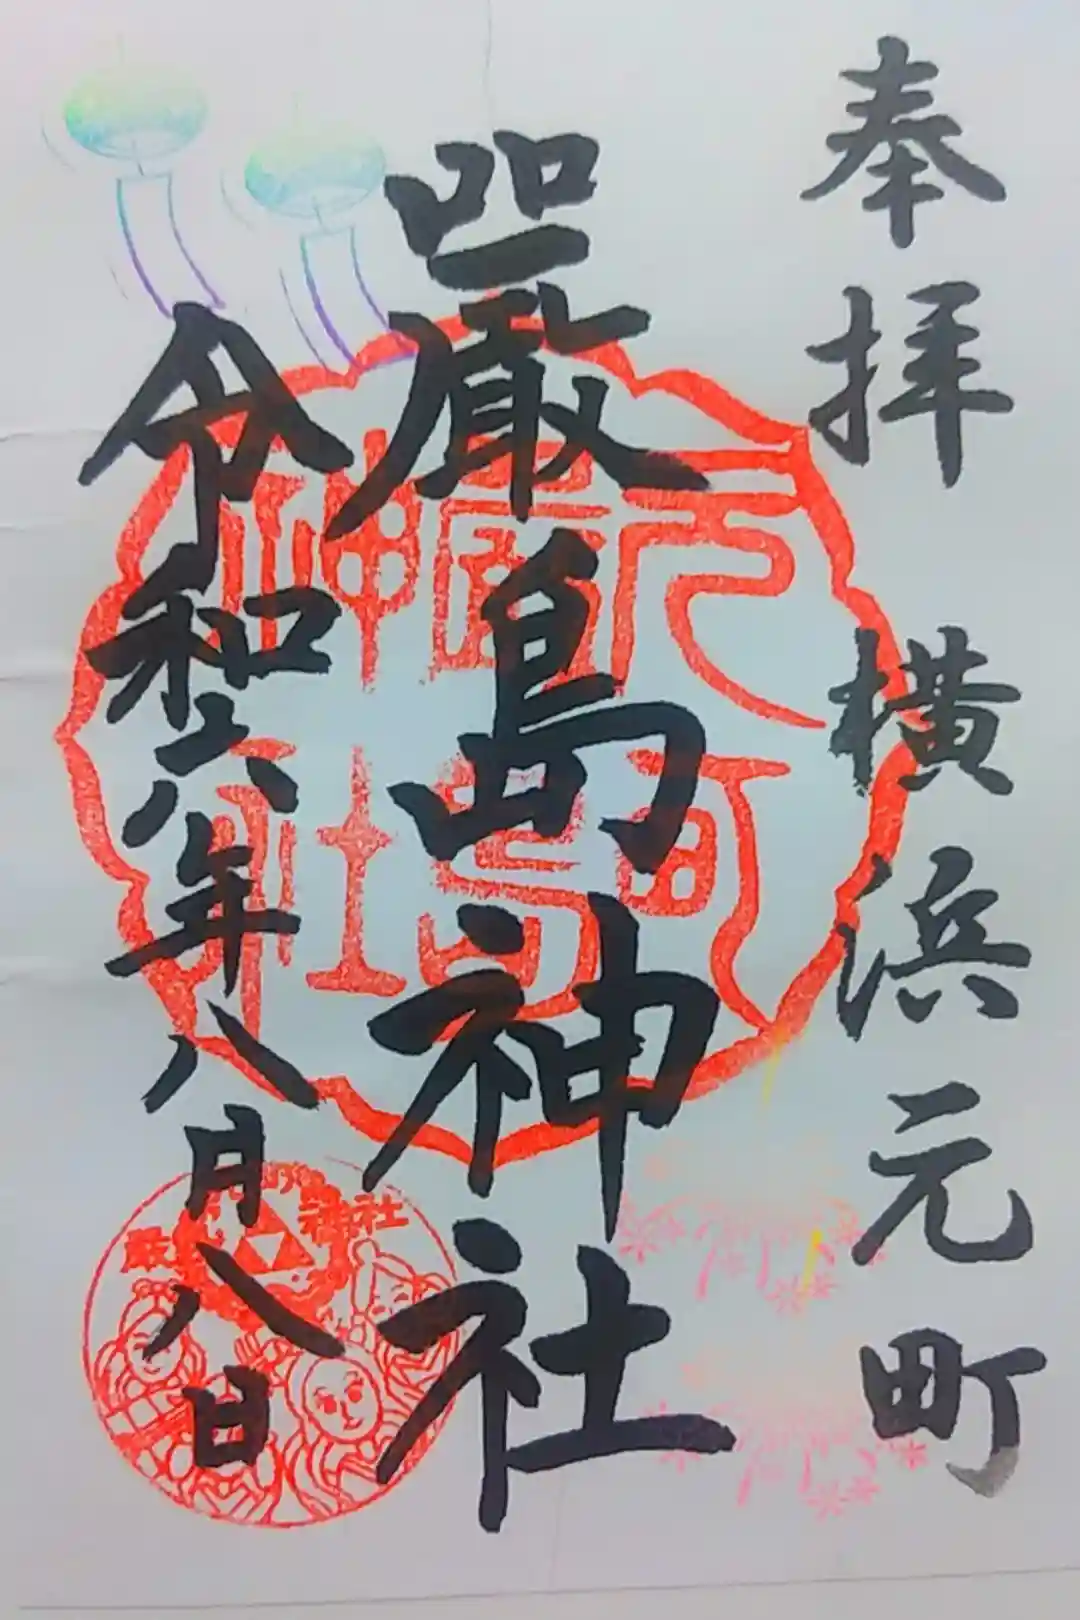 奉拝 横浜元町
厳島神社
令和六年八月八日
元町
厳島
神社
厳島神社